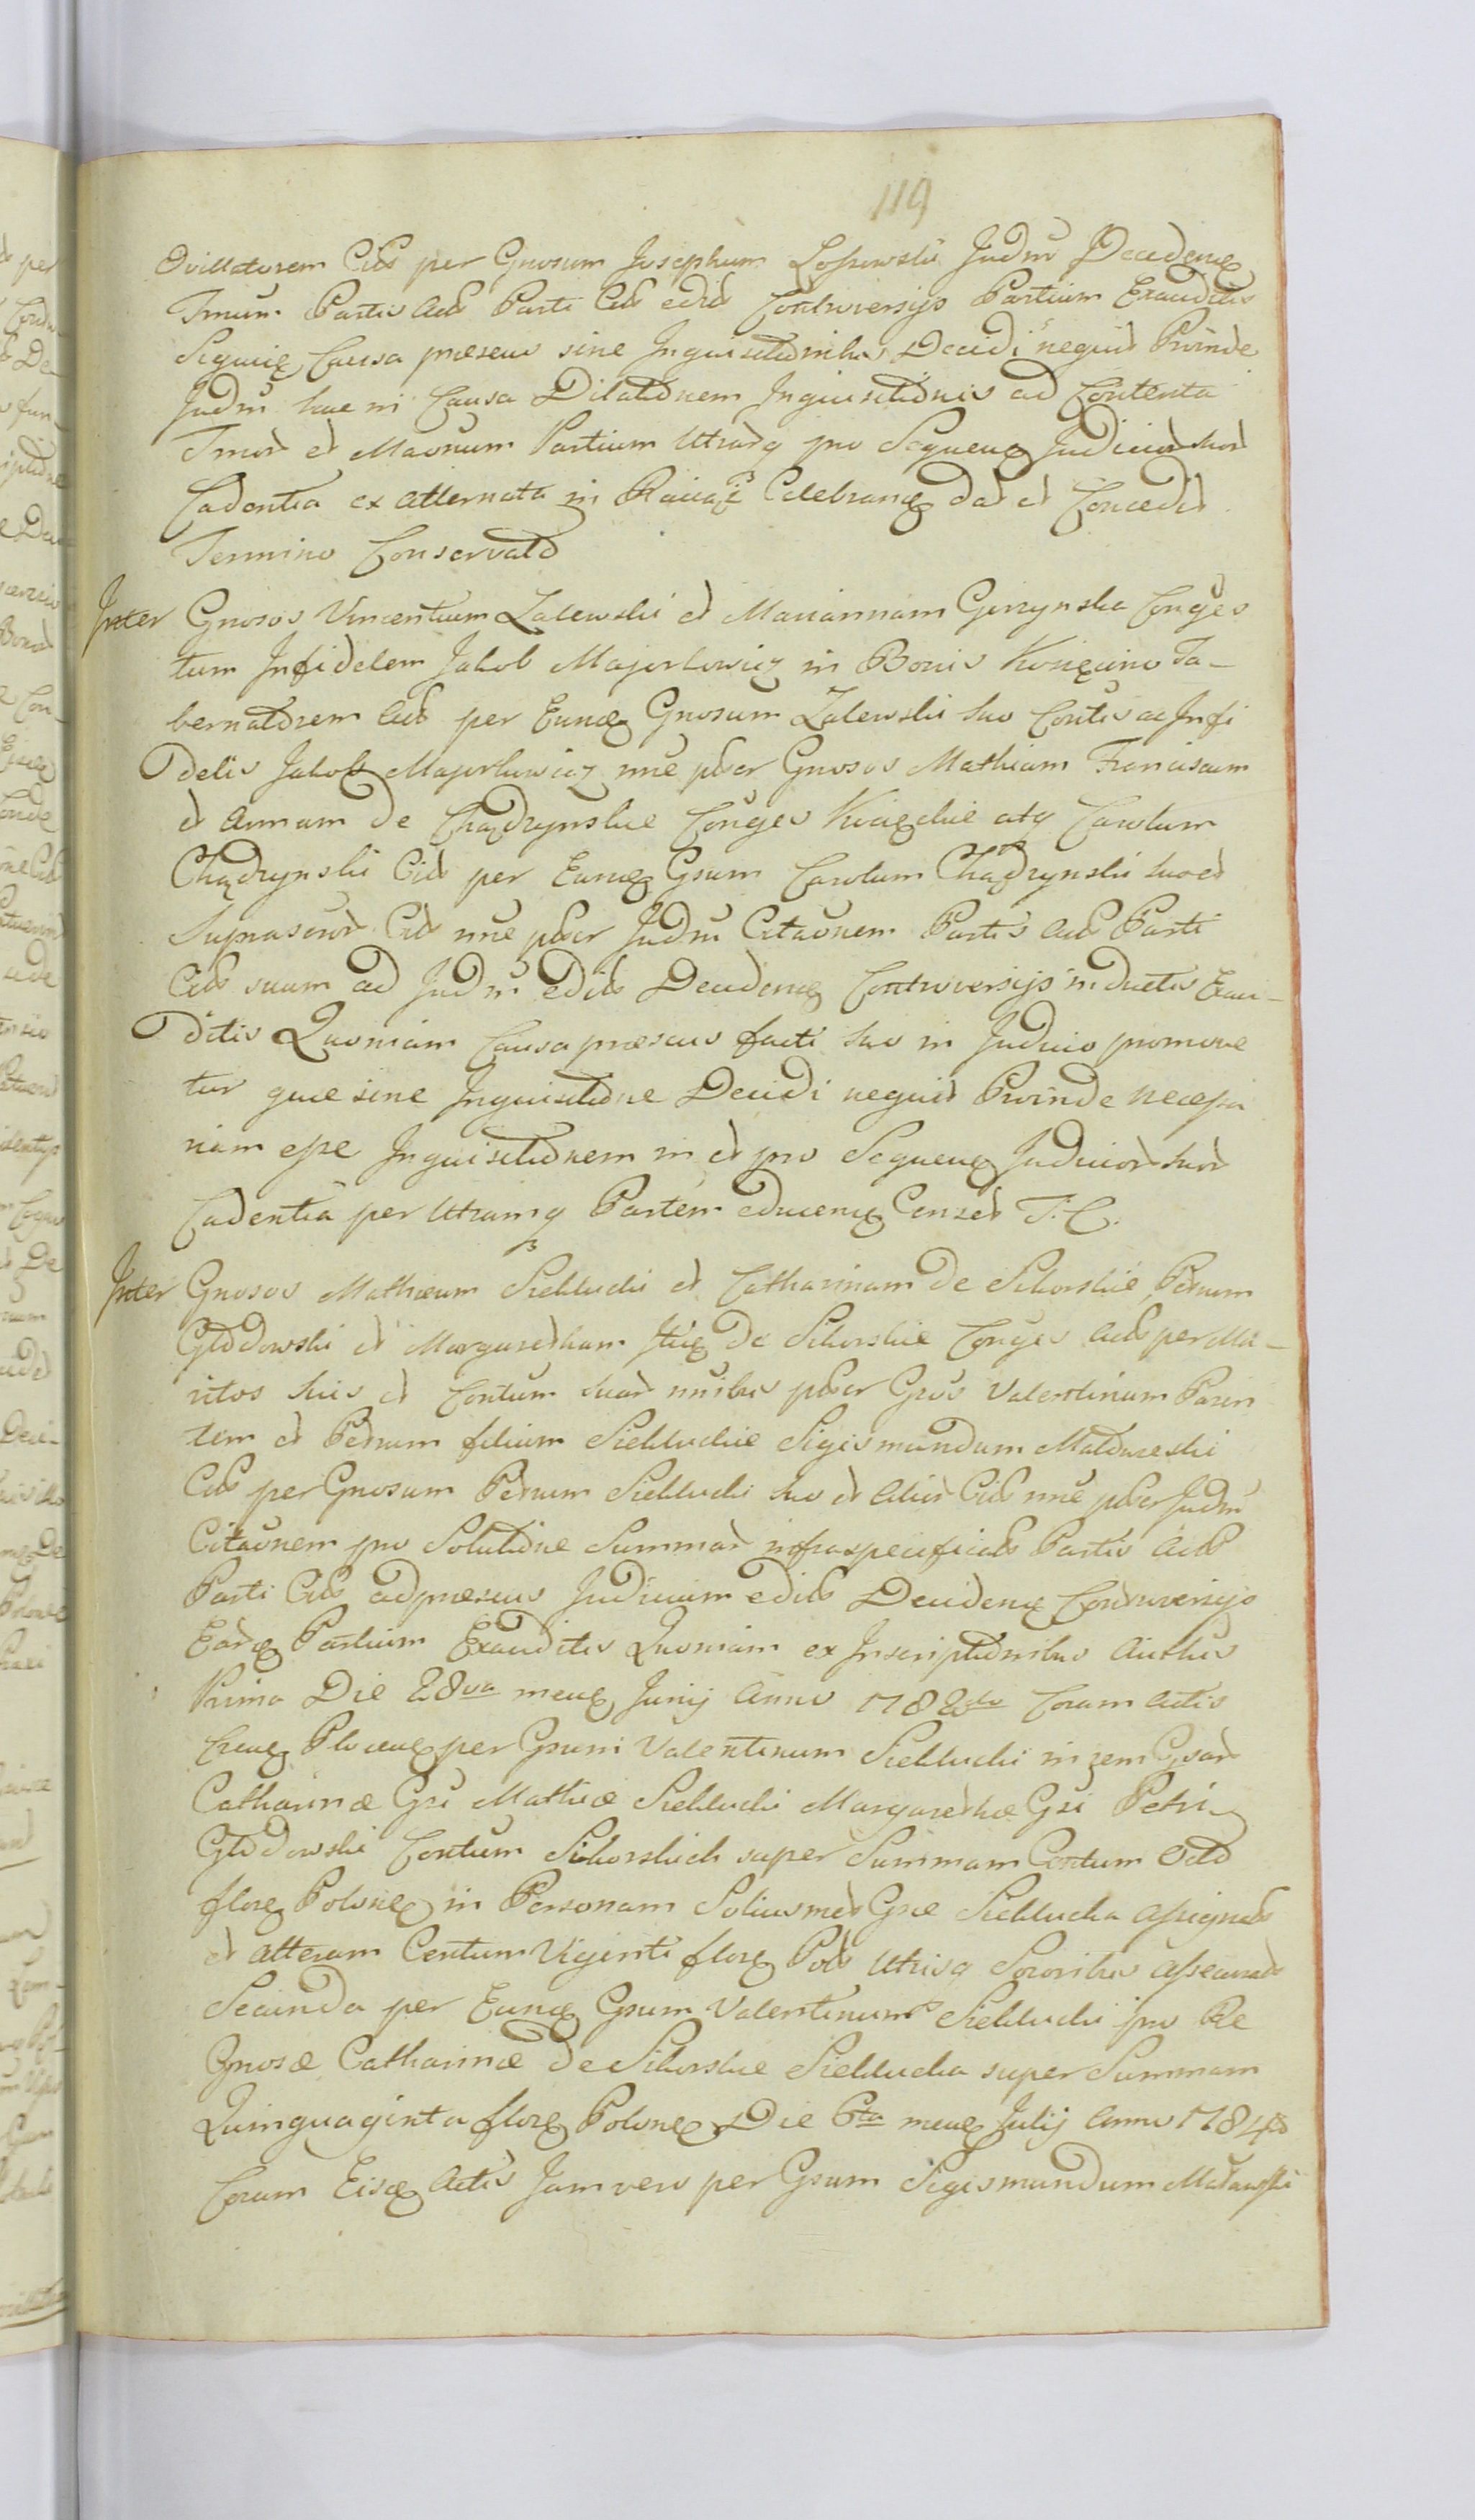 119
Ovillatorem Citt per Gnosum Josephum Judm Decidenę
Tmum Partis Act Parti Citt edit Controversijs Partium Exauditis
Siquidę Causa praesens sine Inquisitionibus Decidi nequit Proinde
Judm hac in Causa Dilationem Inquisitionis ad Contenta
et Partium Utrarq pro Sequenę Judicior suor
Cadentia ex alternata in Celebranę dat et Concedit
Termino Conservato
Inter Gnosos Vincentium Zalewski et Mariannam Conges
tum Infidelem Jakob Majorkowicz in Bonis Ta-
bernatorem Act per Eunę Gnosum Zalewski suo Contis ac Infi
delis Jakob Majorkowicz nne pber Gnosos Mathiam Franciscum
et Annam de Chądzynskie Conges atq Carolum
Chądzynski Citt per Eunę Gsum Carolum Chądzynski suo et
Suprascror Citt nne pber Judm Citaonem Partis Act Parti
Citt suum ad Judm edit Decidenę Controversijs inductis Exau-
ditis Quoniam Causa praesens facti suo in Judicio promove
tur quae sine Inquisitione Decidi nequit Proinde necessa
riam esse Inquisitionem in et pro Sequenę Judicior suor
Cadentia per Utramq Partem educenę Censet T. C.
Inter Gnosos Mathaeum Siekłucki et Catharinam de Sikorskie Petrum
Głodowski et Margaretham de Sikorskie Conges Act per Ma-
ritos suis et Contum suar nnibus pber Gnos Valentinum Paren
tem et Petrum filium Siekłuckie Sigismundum
Citt per Gnosum Petrum Siekłucki suo et Alior Citt nne pber Judm
Citaonem pro Solutione Summar infraspecificat Partis Act
Parti Citt ad praesens Judicium edit Decidenę Controversijs
Earę Partium Exauditis Quoniam ex Inscriptionibus
Prima Die 28va mensę Junij Anno 1782do Coram Actis
Plocenę per Gsum Valentinum Siekłucki in rem Gsar
Catharinae Gsi Mathiae Siekłucki Margarethae Gsi Petri
Głodowski Contum Sikorskich super Summam Centum Octo
florę Polonę in Personam Soliusmet Gsae Siekłucka assignat
et alteram Centum Viginti florę Pol Utrisq Sororibus assecurat
Secunda per Eunę Gsum Valentinum Siekłucki pro Re
Gnosae Catharinae de Sikorskie Siekłucka super Summam
Quinquaginta florę Polonę Die 6ta mensę Julij Anno 1784to
Coram Eisdę Actis Jam vero per Gsum Sigismundum